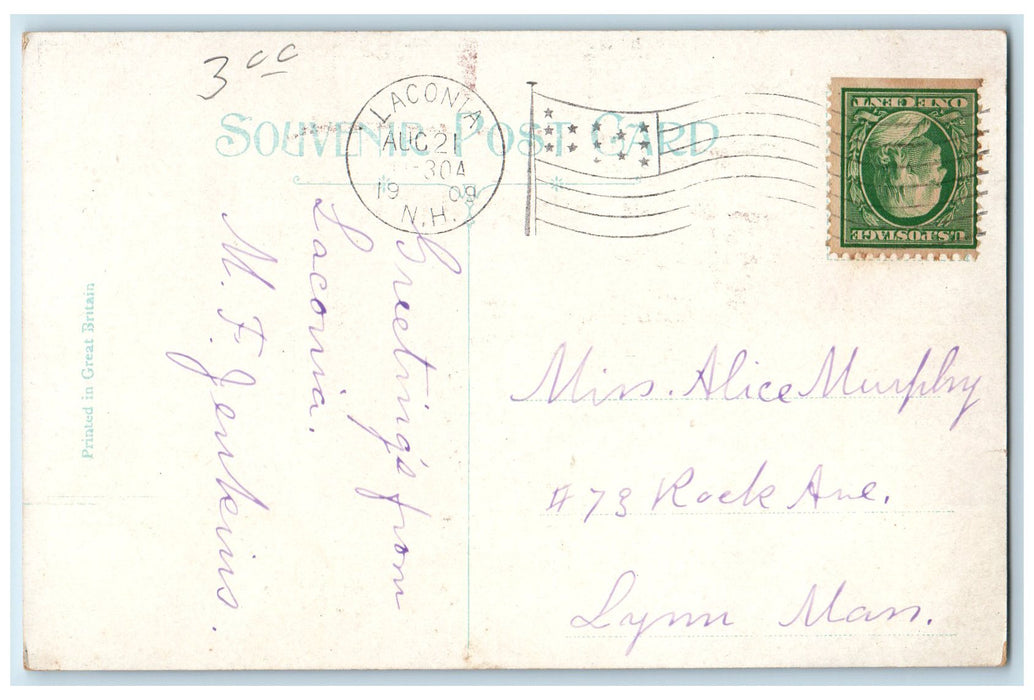 3 00
SOUVENIR POST CARD
LACONIA
AUG 21
30A
1909
N.H.
ONE CENT
U.S. POSTAGE
Greetings from
Laconia.
M. F. Jenkins.
Miss. Alice Murphy
#73 Rock Ave.
Lynn Mass.
Printed in Great Britain